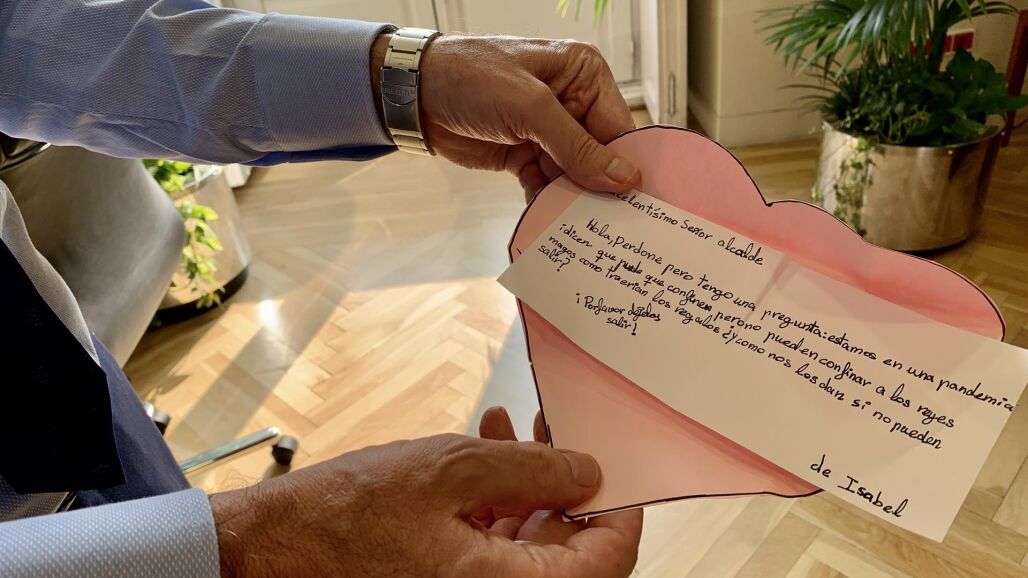 celentísimo Señor alcalde
Hola, Perdone pero tengo una pregunta: estamos en una pandemia
¡dicen que puede que confinen perono pueden confinar a los reyes
magos como traerian los regalos ¿y como nos los dan si no pueden
salir?
¡Porfavor déjelos
salir!
de Isabel